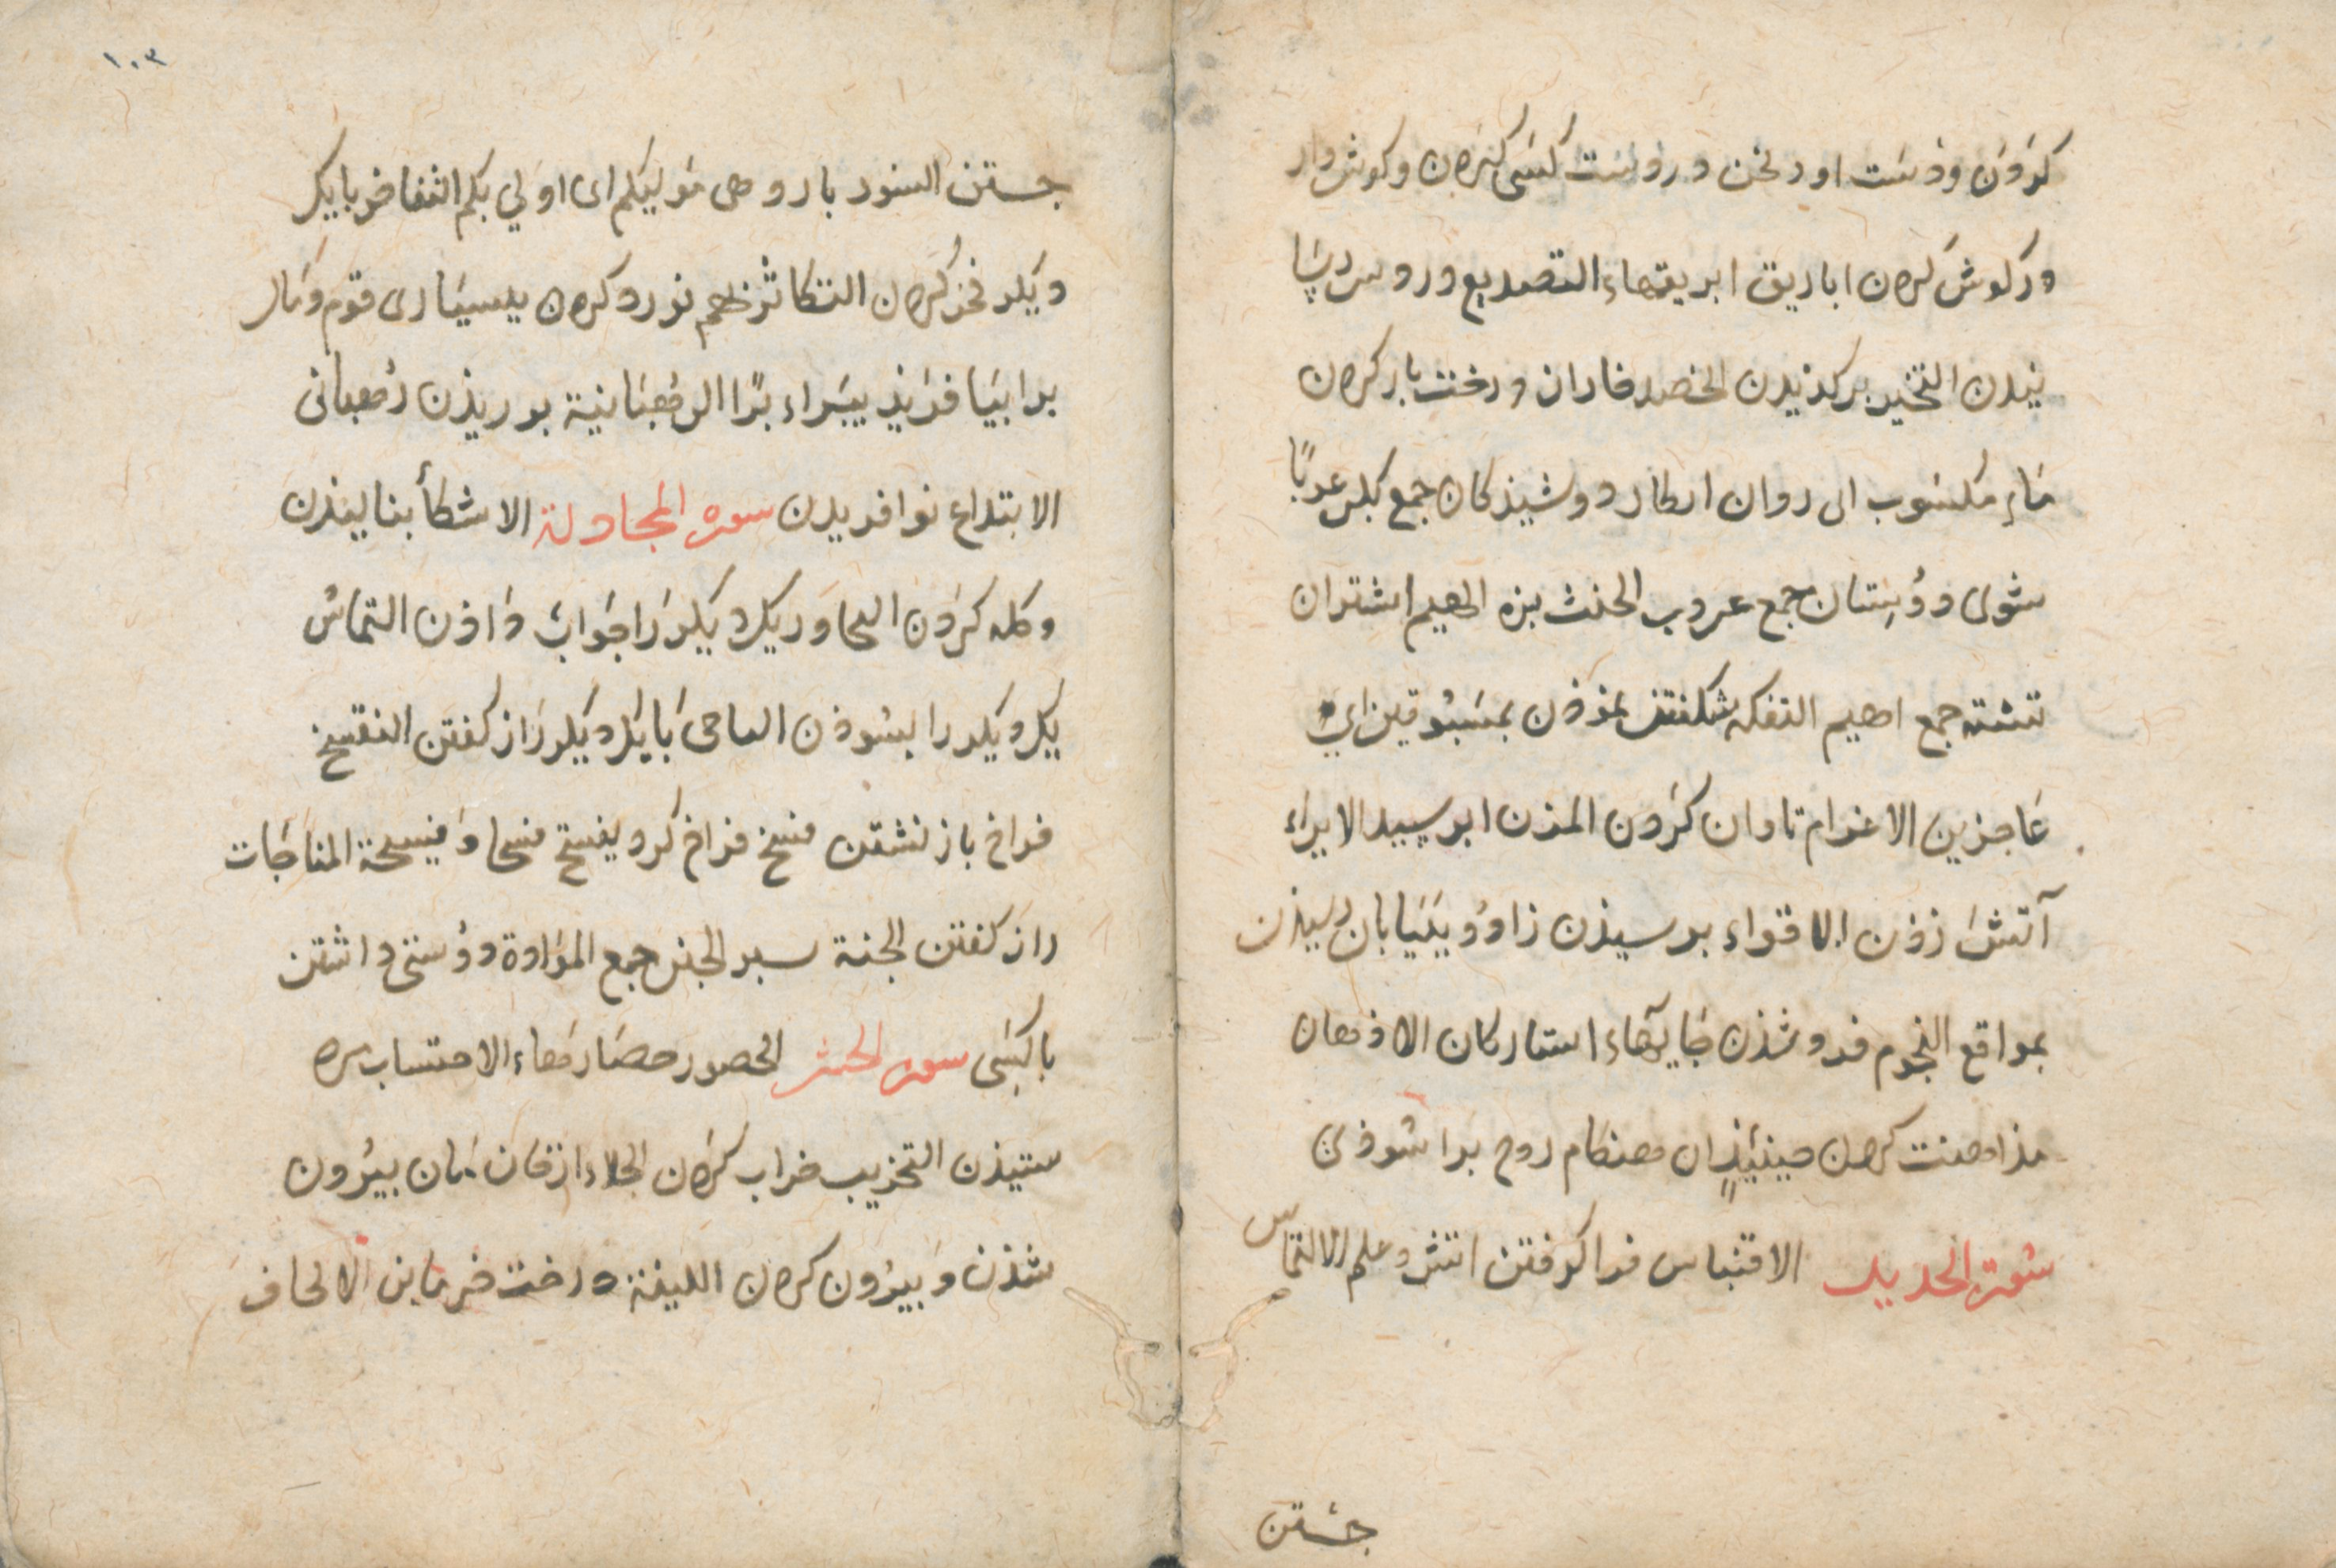 کردن ودست اورنجن دروست کسی کردن وکوش وار
درکوش کردن اباریق ابریقهاء التصدیع دروسر
ندن التخیر برکذیدن الخضد فاران درخت باز کردن
ماء مسکوب ای روان ابکار دوشیذکان جمع بکر عربًا
شوی دوستان جمع عروب الحنث بزه الهیم اشتران
تشنه جمع اهیم التفکه شکفتن نموذن بمسبوقین ای
عاجزین الاغرام تاوان کردن المزن ابر سپید الایراء
آتش زذن الاقواء برسیذن زاد و بیابان رسیذن
بمواقع النجوم فروشذن جایهاء استارکان الادهان
مداهنت کردن حینئیذٍ ان هنکام روح براشوذن
سورة الحدید الاقتباس فرا کرفتن اتش وعلم الالتماس
جستن
١٠٣
جستن السور بارو هی مولیکم ای اولی بکم التفاخر بایک
دیکر فخر کردن التکاثر نورد کردن ببسیاری قوم ومال
برابیافریذ بیبراء برًا الرهبانیة بورزیذن رهبانی
الابتداع نوافریدن سوره المجادلة الاشتکاء بنالیذن
وکله کردن التحاور یک دیکر را جواب داذن التماس
یک دیکر را بسوذن التناجی با یک دیکر راز کفتن التفسح
فراخ باز نشستن فسح فراخ کرد یفسح فسحا وفسحة المناجات
راز کفتن الجنة سبر الجنن جمع الموادة دوستی داشتن
با کسی سوره الحشر الحصور حصارهاء الاحتساب
ستیذن التخریب خراب کردن الجلاء ازخان مان بیرون
شذن وبیرون کردن اللینة درخت خرما بن الایجاف